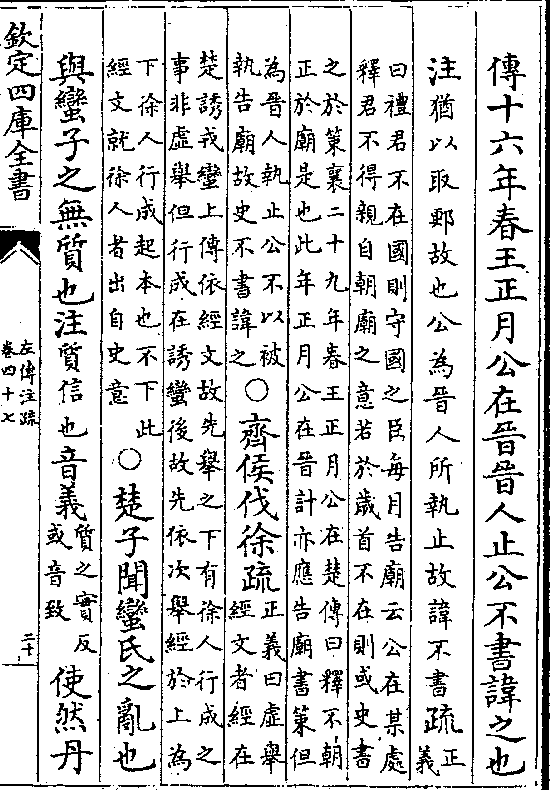 傳十六年春王正月公在晉晉人止公不書諱之也
注猶以取鄆故也公為晉人所執止故諱不書疏正
義
曰禮君不在國則守國之臣每月告廟云公在某處
釋君不得親自朝廟之意若於歲首不在則或史書
之於策襄二十九年春王正月公在楚傳曰釋不朝
正於廟是也此年正月公在晉計亦應告廟書策但
為晉人執止公不以被
執告廟故史不書諱之
○齊侯伐徐疏正義曰虛舉
經文者經在
楚誘戎蠻上傳依經文故先舉之下有徐人行成之
事非虛舉但行成在誘蠻後故先依次舉經於上為
下徐人行成起本也不下此
經文就徐人者出自史意
○楚子聞蠻氏之亂也
與蠻子之無質也注質信也音義質之實反
或音致
使然丹
欽定四庫全書
左傳注疏
卷四十七
二十